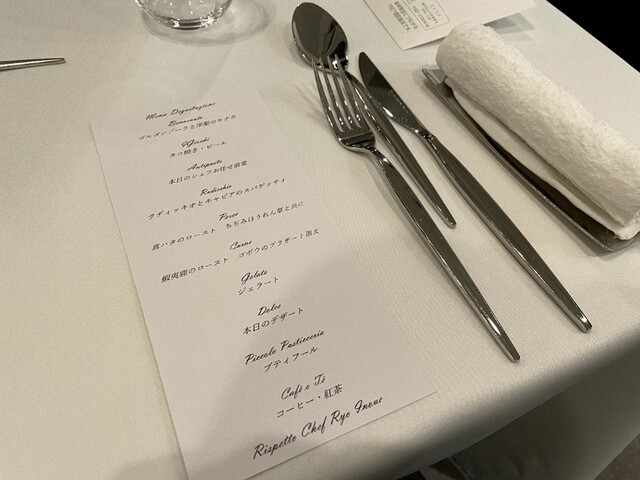 Menu Degustazione
Benvenuto
ゴルゴンゾーラと洋梨のモナカ
タコ焼き・ビール
Antipasto
本日のシェフお任せ前菜
Radicchio
ラディッキオとキャビアのスパゲッティ
Pesce
真ハタのロースト ちぢみほうれん草と共に
Carne
蝦夷鹿のロースト ゴボウのブラザート添え
Gelato
ジェラート
Dolce
本日のデザート
Piccola Pasticceria
プティフール
Café o Tè
コーヒー・紅茶
Rispetto Chef Ryo Inoue